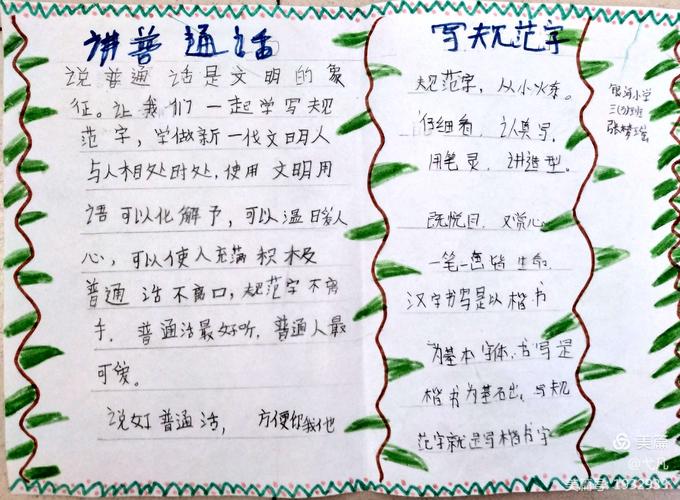 讲普通话
说普通话是文明的象
征。让我们一起学写规
范字,学做新一代文明人
与人相处时处,使用文明用
语可以化解予,可以温暖人
心,可以使人充满积极
普通话不离口,规范字不离
手.普通话最好听,普通人最
可爱。
说好普通话,方便你我他
写规范字
规范字,从小练。
仔细看,认真写,
用笔灵,讲造型。
既悦目,又赏心。
一笔一画皆生命.
汉字书写是以楷书
为基本字体,书写是
楷书为基石出,写规
范字就是写楷书字
银河小学
三(3)班
美篇
@弋凡